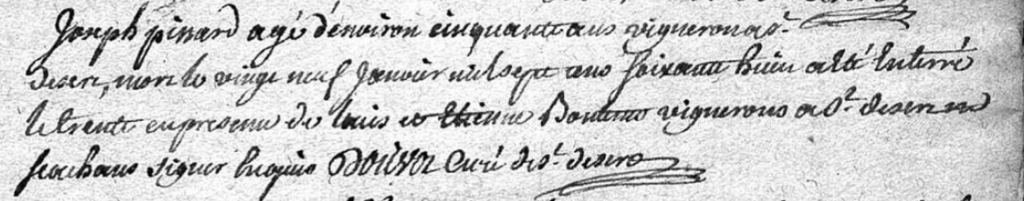 Joseph pinard agé d'environ cinquante ans vigneron a st.
deseré, mort le vingt neuf Janvier mil sept cens soixante huit a été Enterré
le trente en presence de louis et Etienne vignerons a st. deseré ne
scachans signer Enquis curé de st. deseré